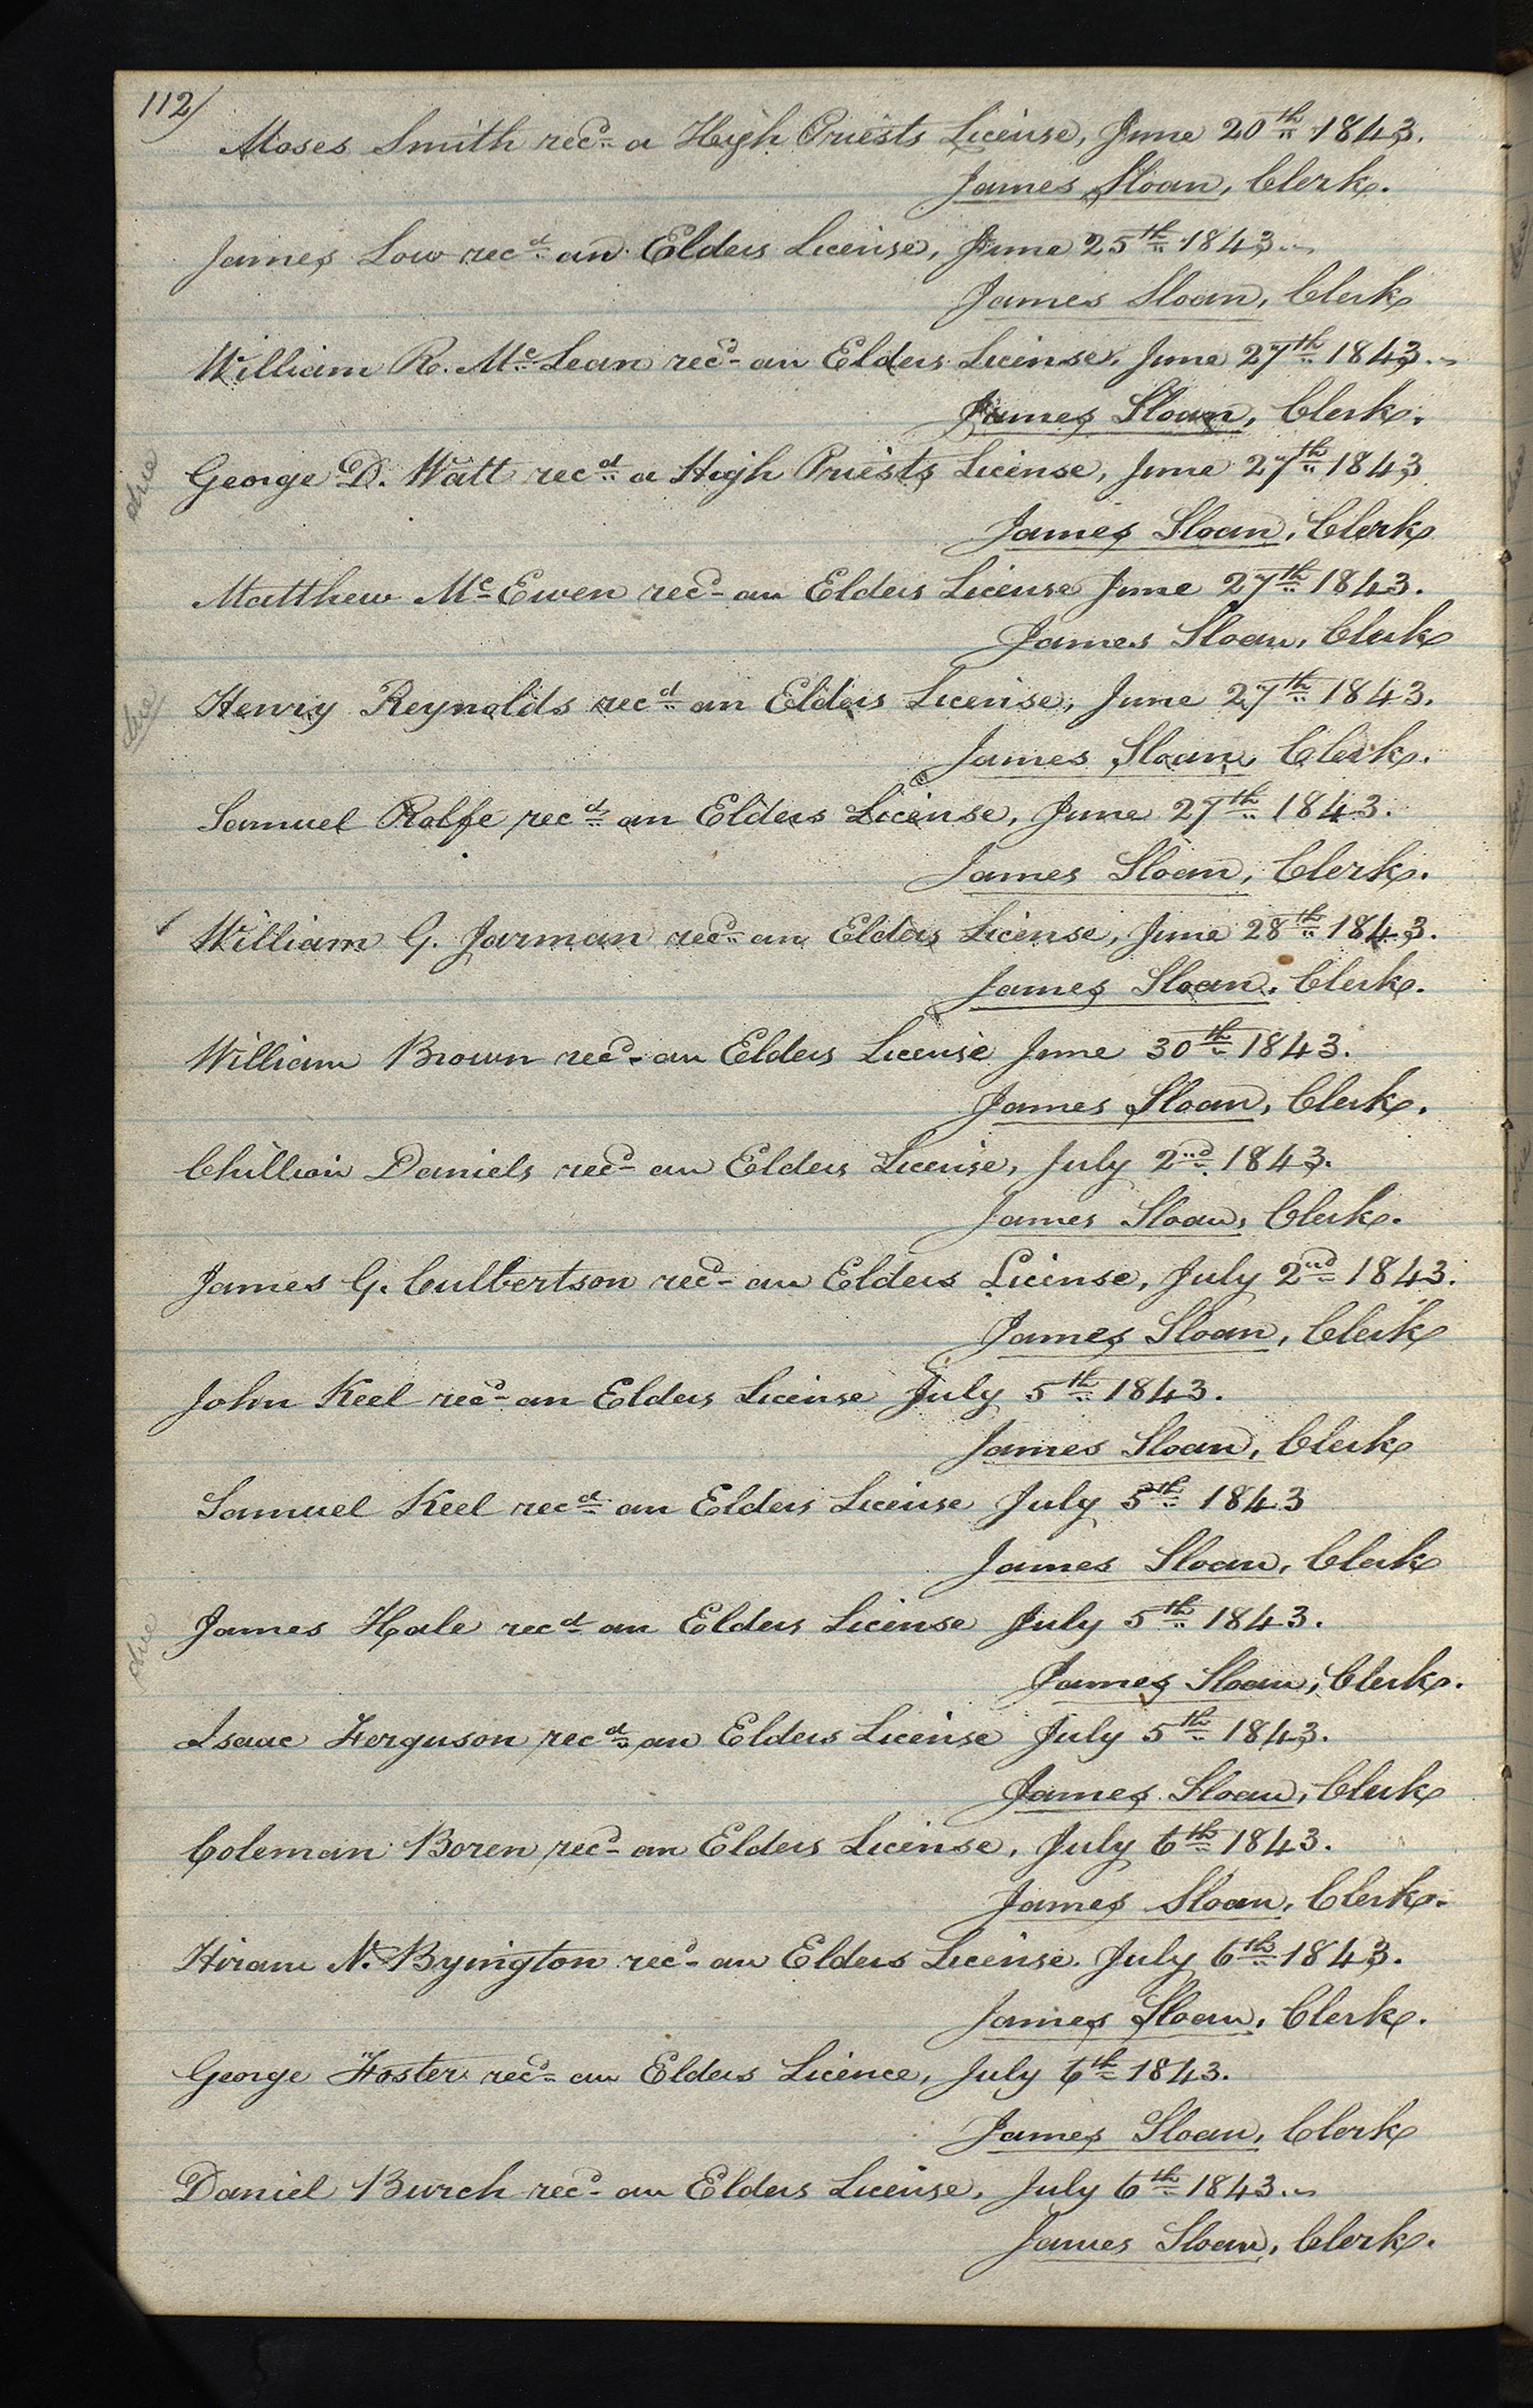 112/
Moses Smith recd. a High Priests License, June 20th. 1843.
James Sloan, Clerk.
James Low recd. an Elders License, June 25th. 1843.
James Sloan, Clerk
William R. McLean recd. an Elders License, June 27th. 1843.
James Sloan, Clerk.
due
George D. Watt recd. a High Priests License, June 27th. 1843
James Sloan, Clerk
Matthew McEwen recd. an Elders License June 27th. 1843.
James Sloan, Clerk
due
Henry Reynolds recd. an Elders License, June 27th. 1843.
James Sloan, Clerk.
Samuel Rolfe recd. an Elders License, June 27th. 1843.
James Sloan, Clerk.
William G. Jarman recd. an Elders License, June 28th. 1843.
James Sloan, Clerk.
William Brown recd. an Elders License June 30th. 1843.
James Sloan, Clerk.
Chillion Daniels recd. an Elders License, July 2nd. 1843.
James Sloan, Clerk.
James G. Culbertson recd. an Elders License, July 2nd. 1843.
James Sloan, Clerk
John Keel recd. an Elders License July 5th. 1843.
James Sloan, Clerk
Samuel Keel recd. an Elders License July 5th. 1843
James Sloan, Clerk
due
James Hale recd. an Elders License July 5th. 1843.
James Sloan, Clerk.
Isaac Ferguson recd. an Elders License July 5th. 1843.
James Sloan, Clerk
Coleman Boren recd. an Elders License, July 6th. 1843.
James Sloan, Clerk.
Hiram N. Byington recd. an Elders License. July 6th. 1843.
James Sloan, Clerk.
George Foster recd. an Elders Licence, July 6th. 1843.
James Sloan, Clerk
Daniel Burch recd. an Elders License, July 6th. 1843.
James Sloan, Clerk.